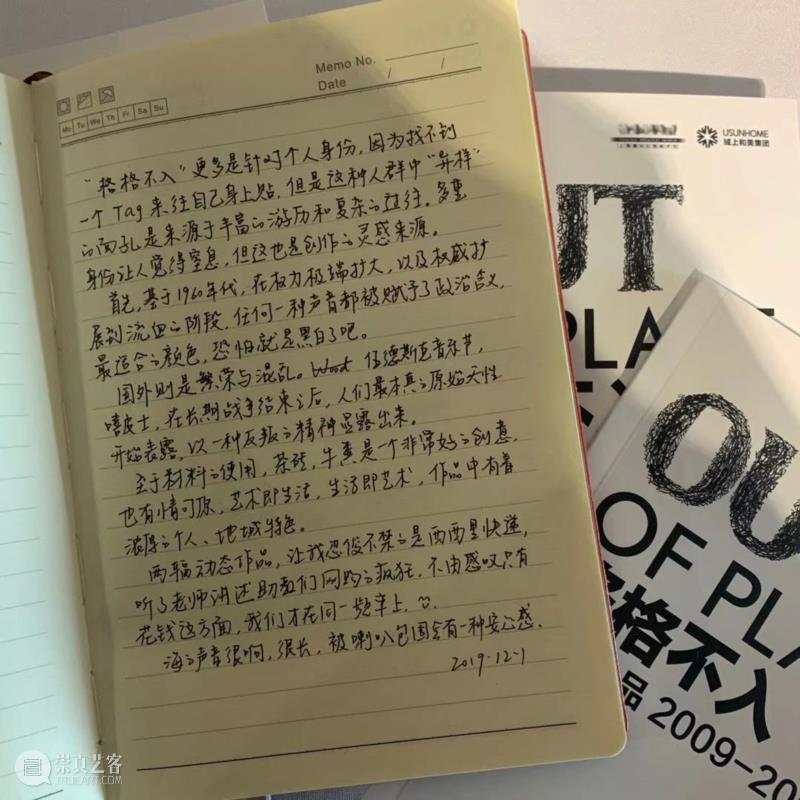 Memo No.
Date / /
Mo Tu We Th Fr Sa Su
“格格不入”更多是针对个人身份,因为找不到
一个Tag来往自己身上贴,但是这种人群中“异样”
的面孔是来源于丰富的游历和复杂的过往。多重
身份让人觉得窒息,但这也是创作的灵感来源。
首先,基于1960年代,在权力极端扩大,以及权威扩
展到流血的阶段,任何一种声音都被赋予了政治含义,
最适合的颜色,恐怕就是黑白了吧。
国外则是繁荣与混乱。伍德斯克音乐节,
嘻皮士,在长期战争结束之后,人们最本真的原始天性
开始表露,以一种反叛的精神显露出来。
至于材料的使用,茶砖,牛粪是一个非常好的创意,
也有情可原,艺术即生活,生活即艺术,作品中有着
浓厚的个人、地域特色。
两辐动态作品,让我忍俊不禁的是西西里快递,
听了老师讲述助教们网购的疯狂,不由感叹只有
花钱这方面,我们才在同一频率上.
海的声音很响,很长,被喇叭包围会有一种安心感.
2019.12.1
USUNHOME
域上和美集团
UT
PLA
OU
OF PLA
格格不入
品 2009-20
崇真艺客
TRUEART.COM